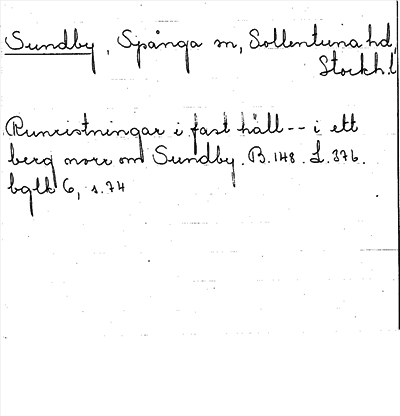 Sundby, Spånga sn, Sollentuna hd,
Stockh. l
Runristningar i fast häll -- i ett
berg norr om Sundby. B. 148. L. 376.
bglk 6, s. 74